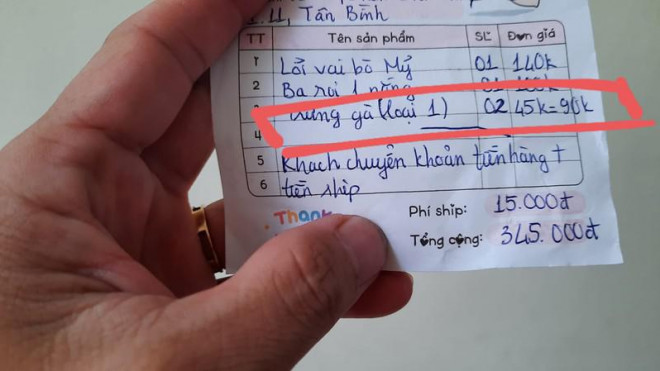 .11, Tân Bình
TT Tên sản phẩm SL Đơn giá
1 Lõi vai bò Mỹ 01 140k
2 Ba rọi 1 nắng 01 100k
3 Trứng gà (loại 1) 02 45k=90k
4
5 Khách chuyển khoản tiền hàng +
6 tiền ship
Thank
Phí ship: 15.000đ
Tổng cộng: 345.000đ